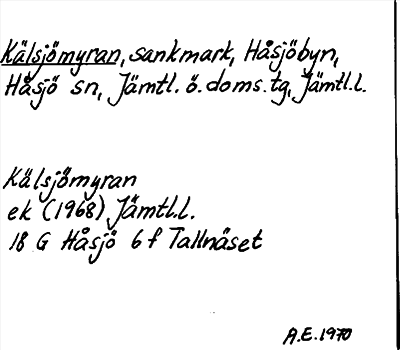 Kälsjömyran, sankmark, Håsjöbyn,
Håsjö sn, Jämtl. ö. doms. tg, Jämtl.l.
Kälsjömyran
ek (1968) Jämtl.l.
18 G Håsjö 6 f Tallnäset
A.E. 1970